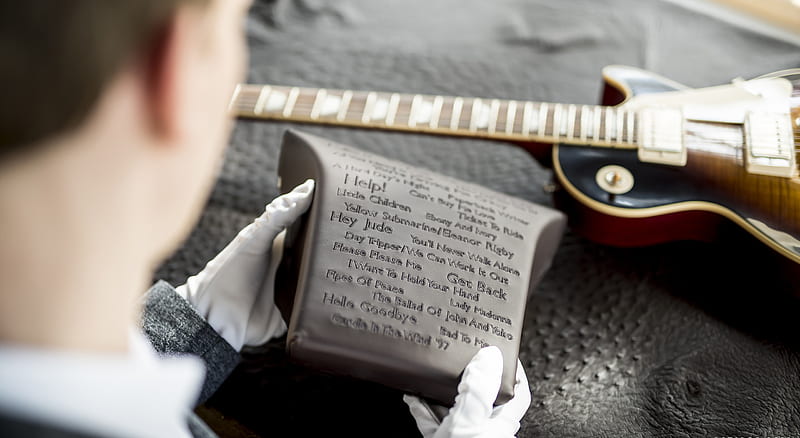 A Hard Day's Night Paperback Writer
Help! Can't Buy Me Love
Little Children Ticket To Ride
Ebony And Ivory
Yellow Submarine/Eleanor Rigby
Hey Jude You'll Never Walk Alone
Day Tripper/We Can Work It Out
Please Please Me Get Back
I Want To Hold Your Hand
Pipes Of Peace Lady Madonna
The Ballad Of John And Yoko
Hello Goodbye Bad To Me
Candle In The Wind '97